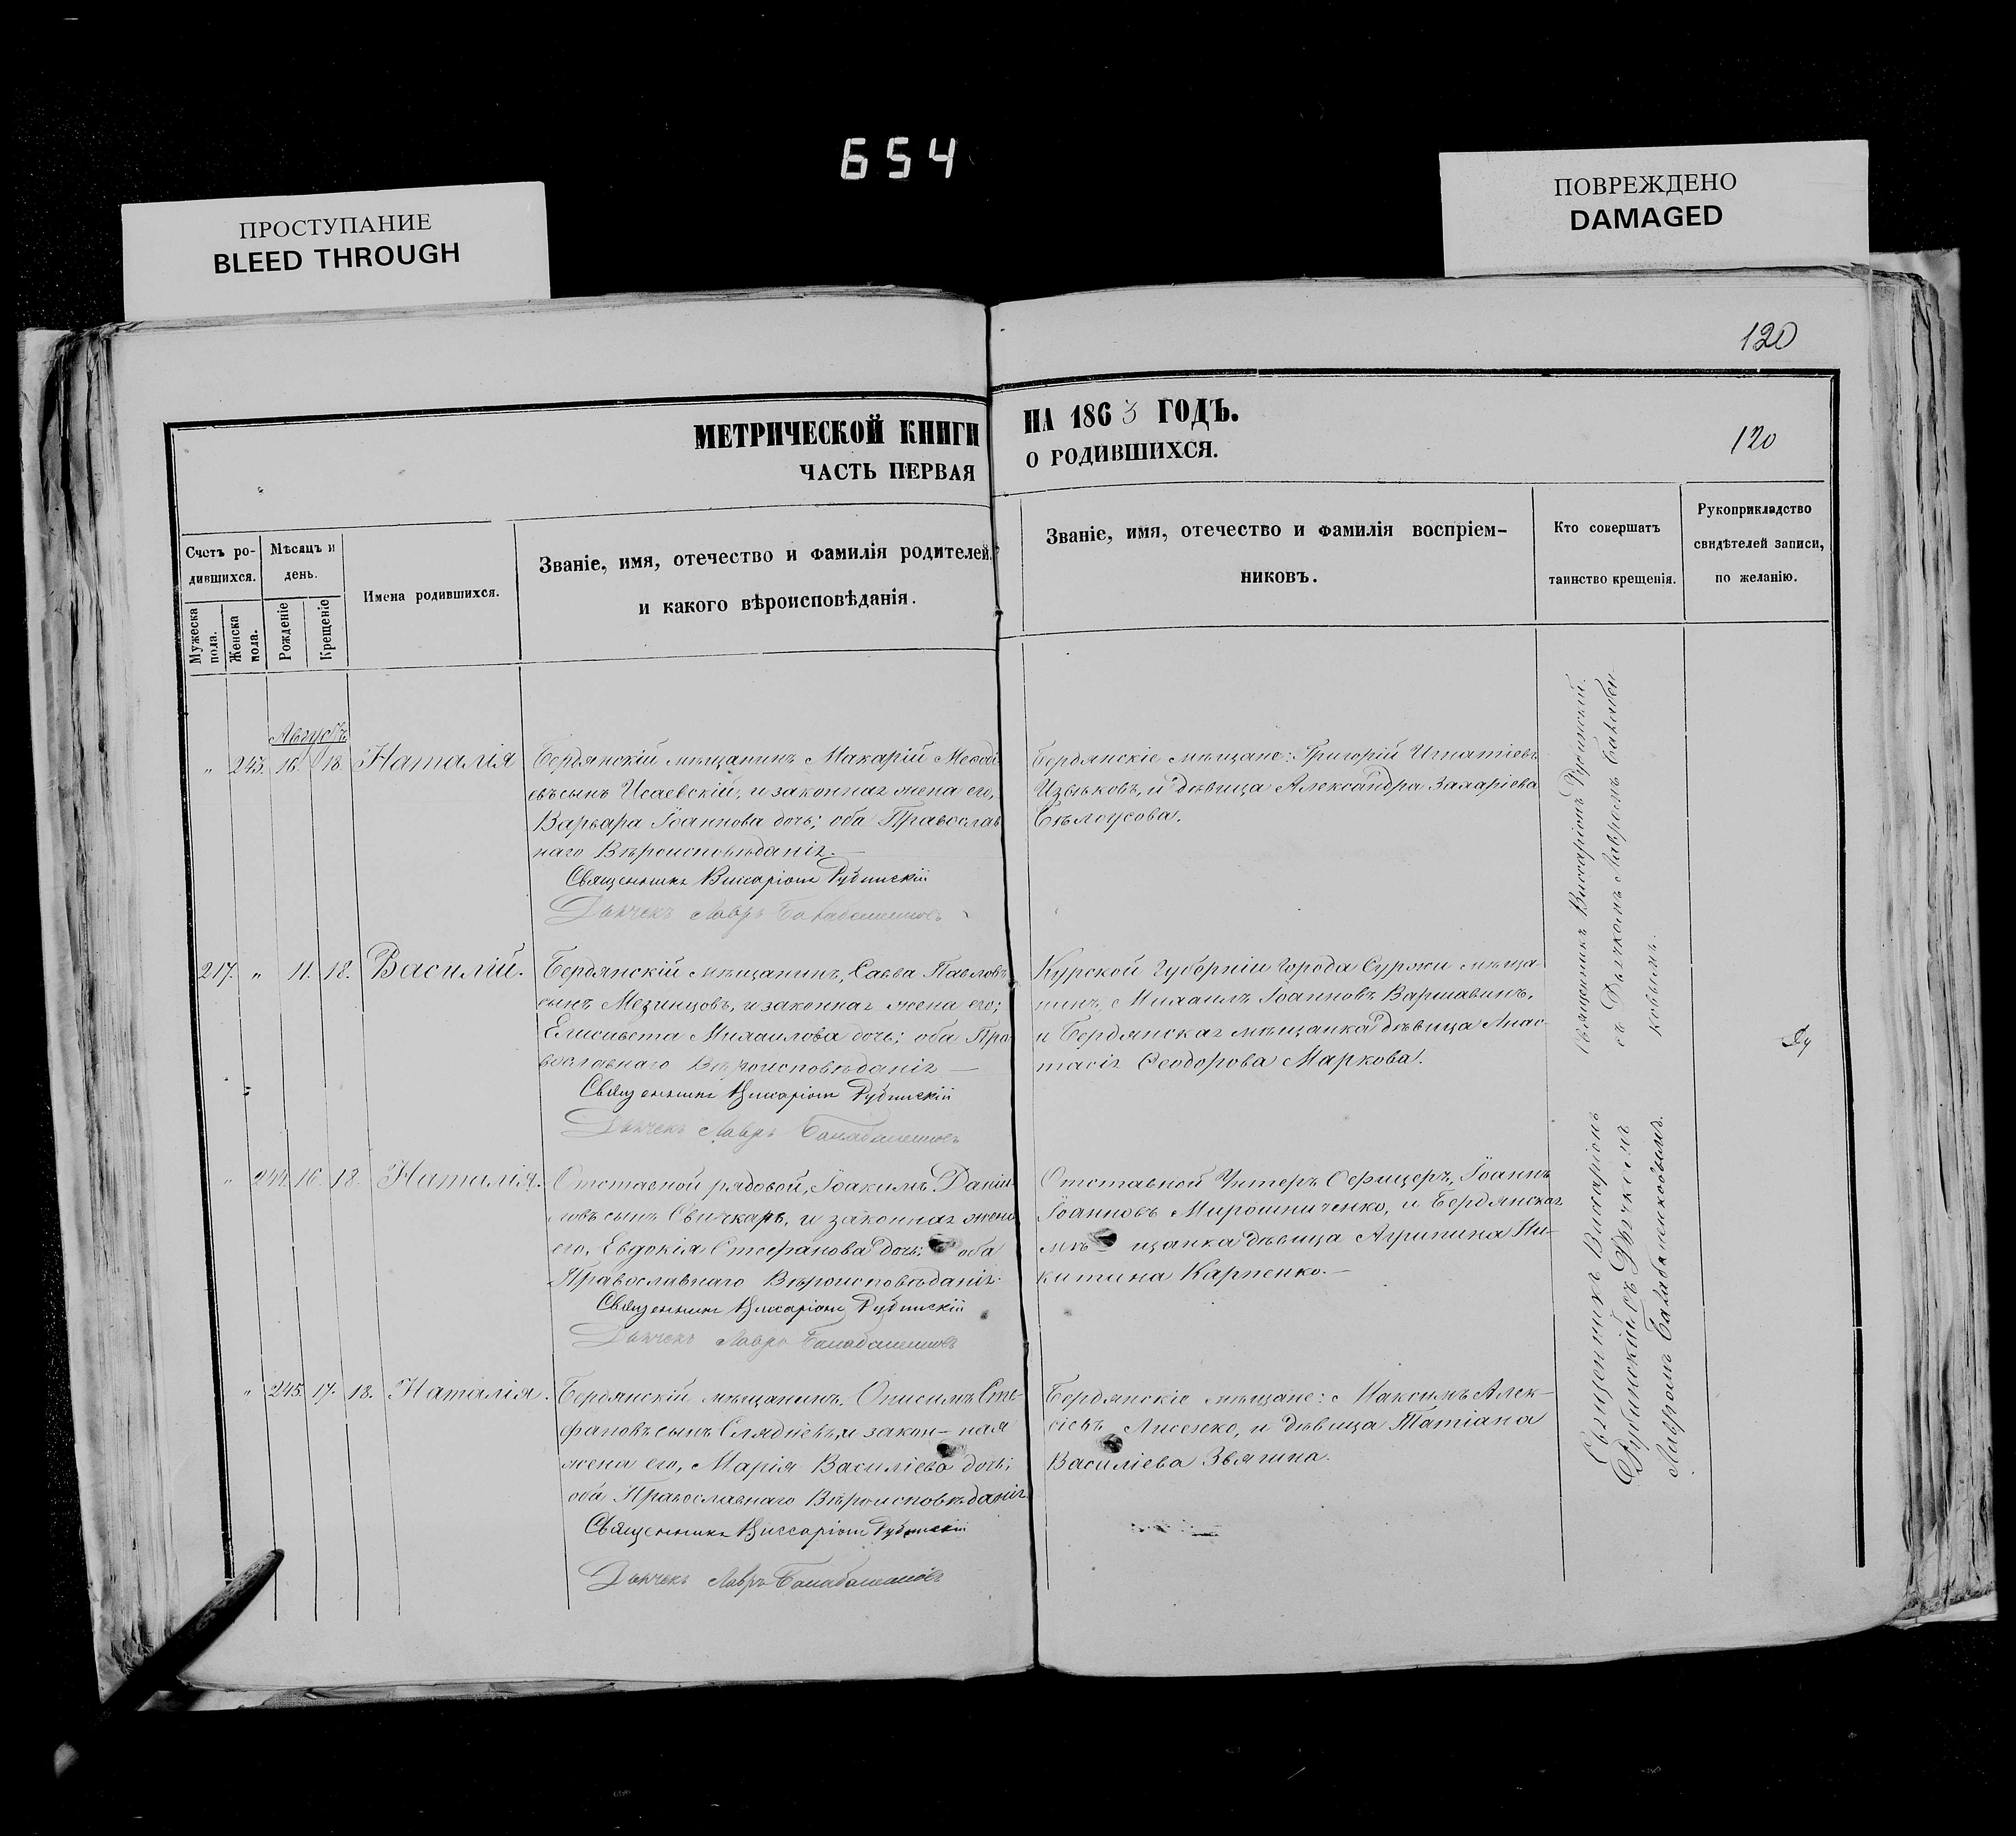 654
ПРОСТУПАНИЕ
BLEED THROUGH
ПОВРЕЖДЕНО
DAMAGED
120
МЕТРИЧЕСКОЙ КНИГИ НА 1863 ГОДЪ.
ЧАСТЬ ПЕРВАЯ О РОДИВШИХСЯ.
120
Счетъ ро-
дившихся.
Мужеска пола.
Женска пола.
Мѣсяцъ и
день.
Рожденіе
Крещеніе
Имена родившихся.
Званіе, имя, отечество и фамилія родителей,
и какого вѣроисповѣданія.
Званіе, имя, отечество и фамилія воспріем-
никовъ.
Кто совершатъ
таинство крещенія.
Рукоприкладство
свидѣтелей записи,
по желанію.
Августъ
" 243. 16. 18. Наталія
Бердянскій мѣщанинъ Макарій Меѳоді
евъ сынъ Исаевскій, и законная жена его,
Варвара Іоаннова дочь; оба Православ
наго Вѣроисповѣданія.
Священникъ Виссаріонъ Рубинскій
Дьячекъ Лавръ
Бердянскіе мѣщане: Григорій Игнатіевъ
и дѣвица Александра Захаріева
Бѣлоусова.
217. " 11. 18. Василій.
Бердянскій мѣщанинъ, Савва Павловъ
сынъ Мезинцовъ, и законная жена его;
Елисавета Михаилова дочь; оба Пра
вославнаго Вѣроисповѣданія —
Священникъ Виссаріонъ Рубинскій
Дьячекъ Лавръ
Курской Губерніи города Суржи мѣща-
нинъ, Михаилъ Іоанновъ Варшавинъ,
и Бердянская мѣщанка дѣвица Анас-
тасія Ѳеодорова Маркова.
" 244. 16. 18. Наталія.
Отставной рядовой, Іоакимъ Даніи-
ловъ сынъ Свичкарь, и законная жена
его, Евдокія Стефанова дочь; оба
Православнаго Вѣроисповѣданія.
Священникъ Виссаріонъ Рубинскій
Дьячекъ Лавръ
Отставной Унтеръ Офицеръ, Іоаннъ
Іоанновъ Мирошниченко, и Бердянская
мѣ щанка дѣвица Агрипина Ни-
китина Карпенко. —
" 245. 17. 18. Наталія.
Бердянскій мѣщанинъ, Онисимъ Сте-
фановъ сынъ и закон- ная
жена его, Марія Василіева дочь;
оба Православнаго Вѣроисповѣданія.
Священникъ Виссаріонъ Рубинскій
Дьячекъ Лавръ
Бердянскіе мѣщане: Максимъ Алек-
сіевъ Лисенко, и дѣвица Татіана
Василіева Звягина.
Священникъ Виссаріонъ Рубинскій
съ Дьячкомъ Лавромъ Балабан
ковымъ.
Священникъ Виссаріонъ
Рубинскій съ Дьячкомъ
Лавромъ Балабаненковымъ.